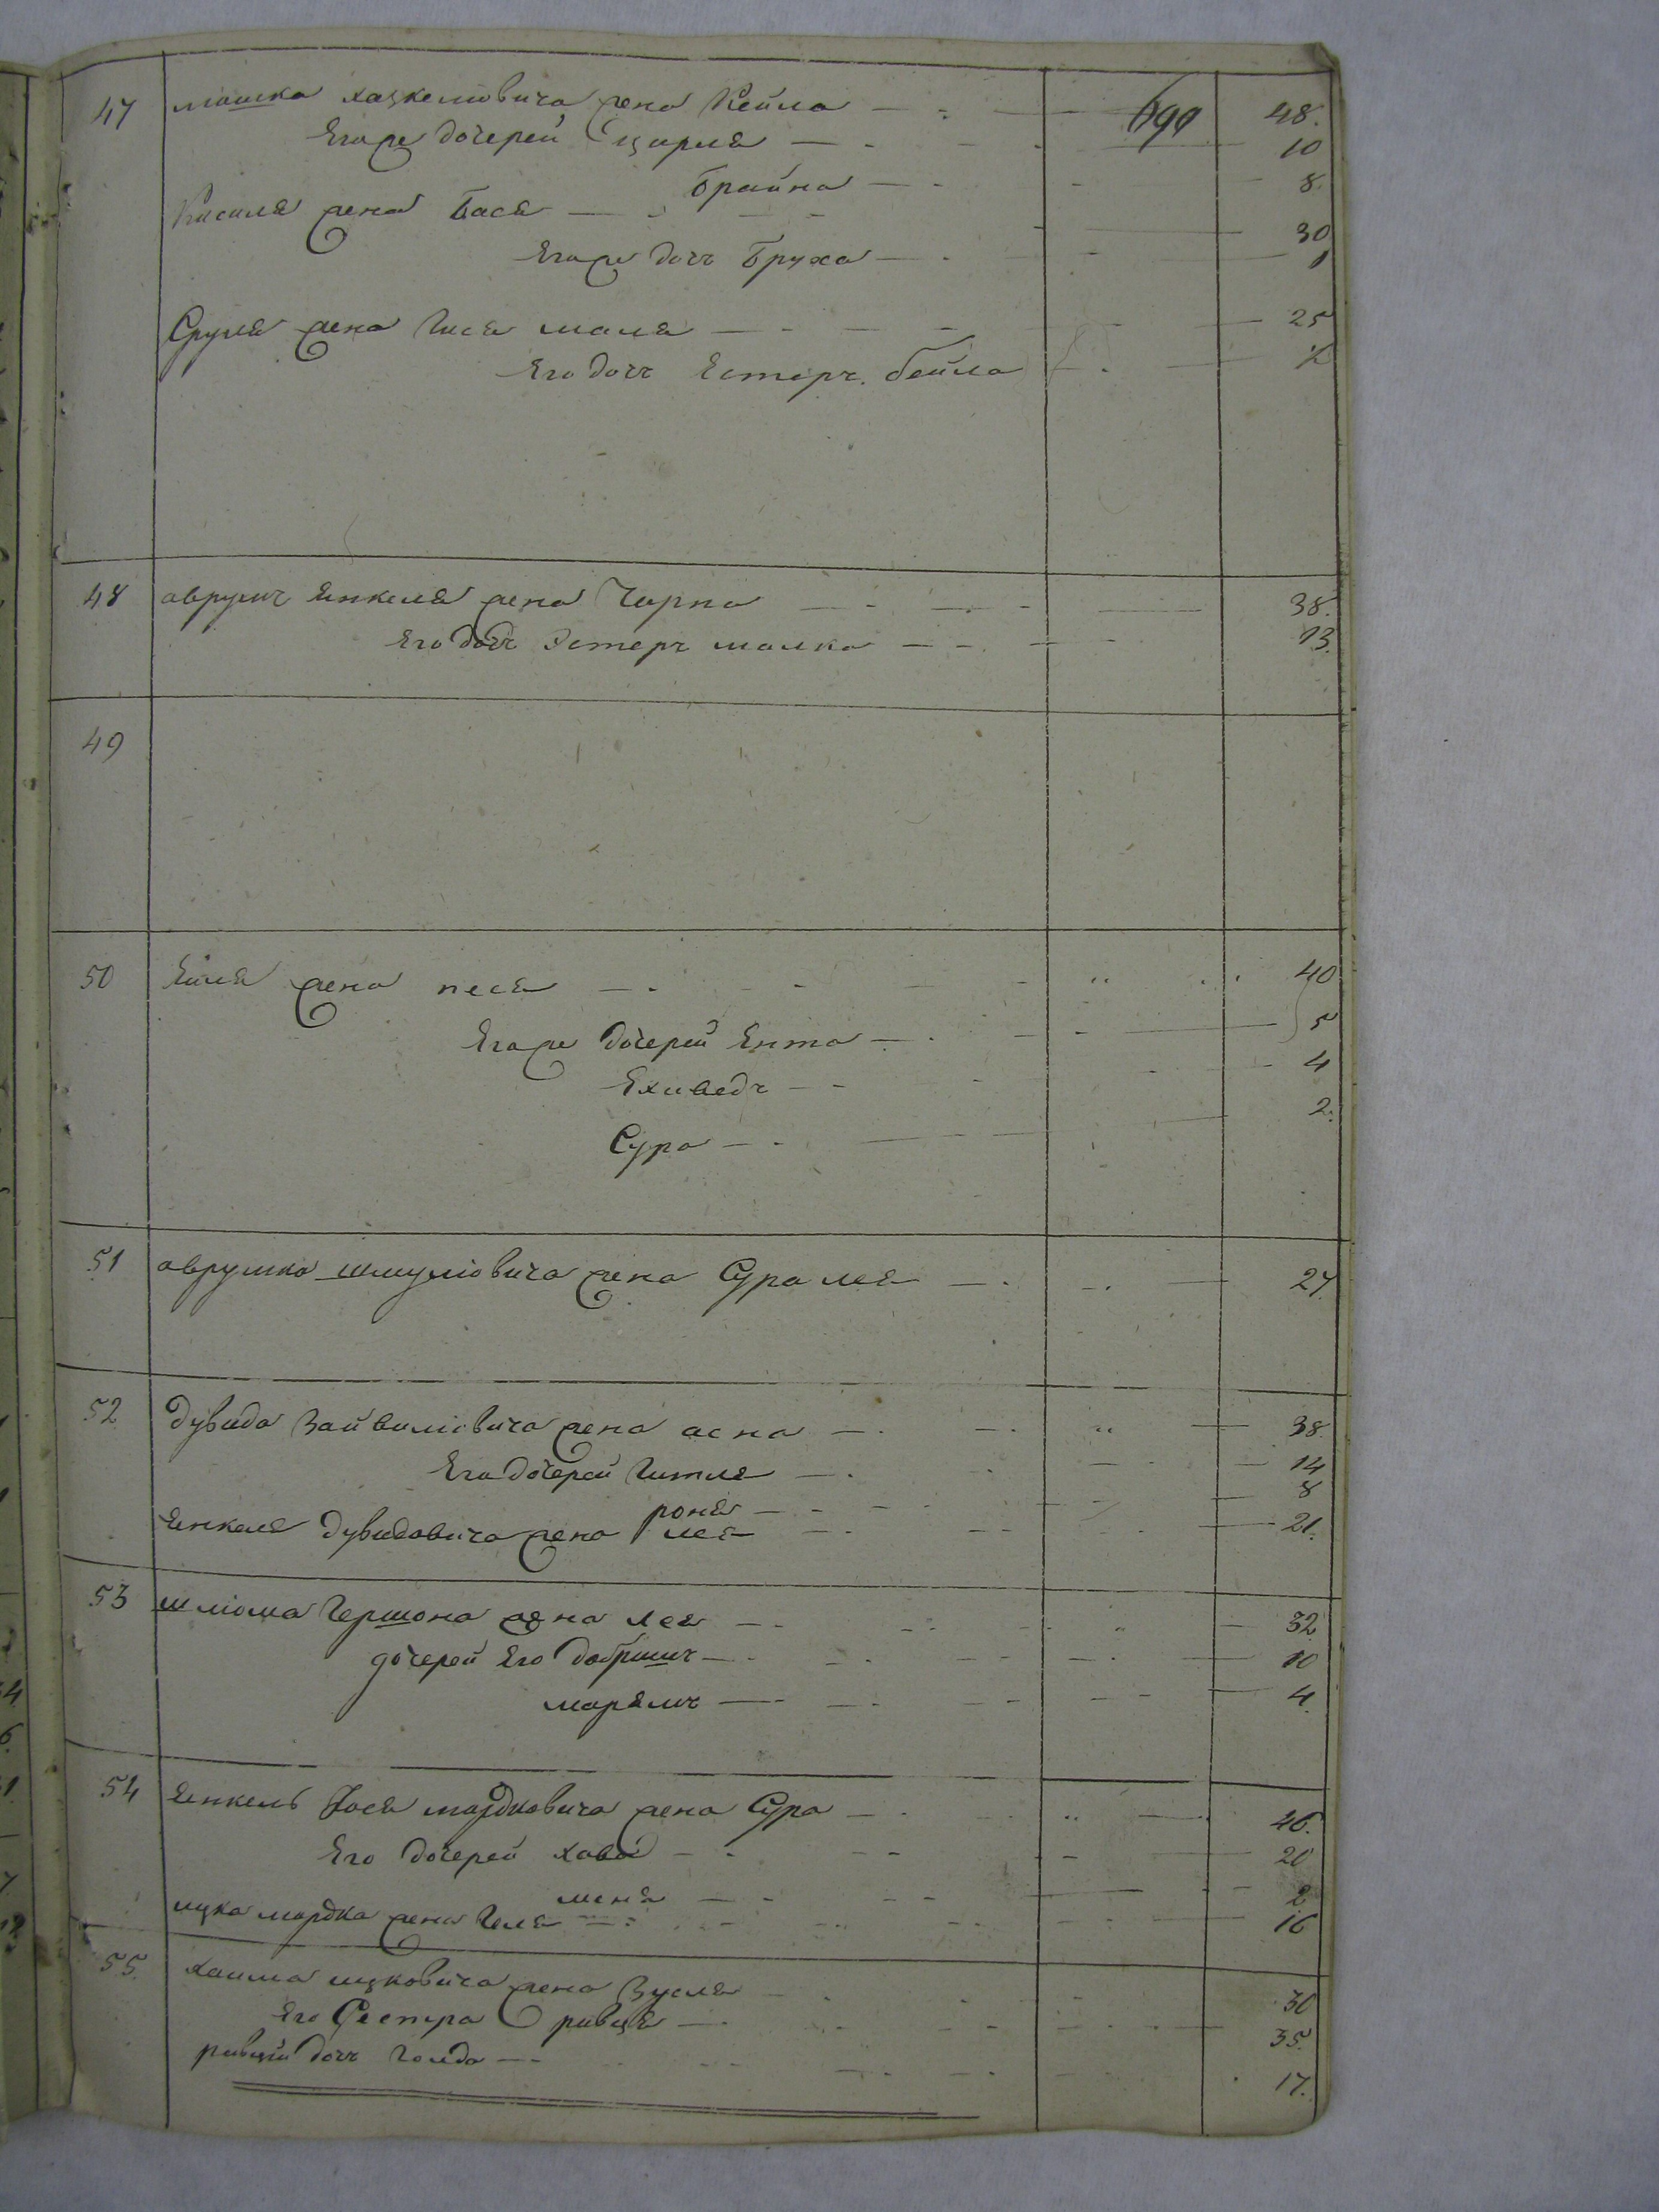 47 мошка хацкелiовича жена Кейла — 699 48.
Егоже дочерей Цирля — 10
Брайна — 8.
Кисиля жена Бася — 30
Егоже дочъ Бруха — 1
Сруля жена Гися маля — 25
Его дочъ Естеръ бейла — ½
48 аврумъ Янкеля жена Чарна — 38.
Его дочъ Эстеръ малка — 13.
49
50 Еиля жена песя — 40
Егоже дочерей Ента — 5
Ехиведъ — 4
Сура — 2.
51 аврумка шмулiовича жена Сура лея — 27.
52 дувида Зайвилiовича жена асна — 38.
Его дочерей Гитля — 14
роня — 8
Янкеля дувидовича жена лея — 21.
53 шлiома Гершона жена лея — 32
дочерей Его добришъ — 10
марямъ — 4.
54 Янкель Iося мордковича жена Сура — 46.
Его дочерей хава — 20
меня — 2
ицка мордка жена Геля — 16
55. хаима ицковича жена Зусля — 30
Его Сестра ривця — 35.
ривцiи дочъ Голда — 17.